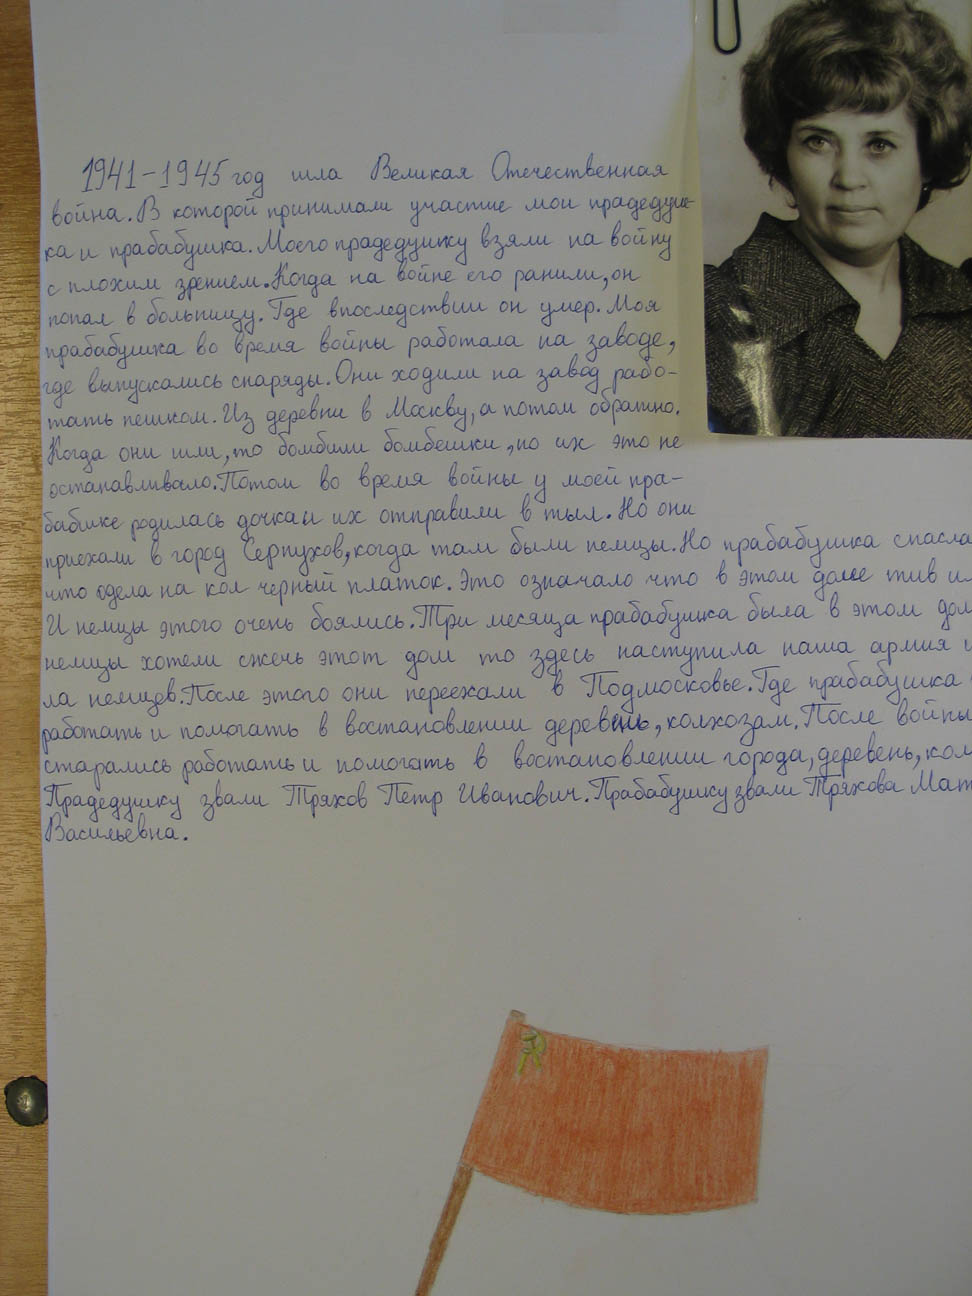 1941-1945 год шла Великая Отечественная
война. В которой принимали участие мои прадедуш-
ка и прабабушка. Моего прадедушку взяли на войну
с плохим зрением. Когда на войне его ранили, он
попал в больницу. Где впоследствии он умер. Моя
прабабушка во время войны работала на заводе,
где выпускались снаряды. Они ходили на завод рабо-
тать пешком. Из деревни в Москву, а потом обратно.
Когда они шли, то бомбили бомбешки, но их это не
останавливало. Потом во время войны у моей пра-
бабшке родилась дочка и их отправили в тыл. Но они
приехали в город Серпухов, когда там были немцы. Но прабабушка спасла
что одела на кол черный платок. Это означало что в этом доме тив
И немцы этого очень боялись. Три месяца прабабушка была в этом дом
немцы хотели сжечь этот дом то здесь наступила наша армия и
ла немцев. После этого они переехали в Подмосковье. Где прабабушка
работать и помогать в востановлении деревень, колхозам. После войны
старались работать и помогать в востановлении города, деревень, кол
Прадедушку звали Тряхов Петр Иванович. Прабабушку звали Тряхова Мат
Васильевна.